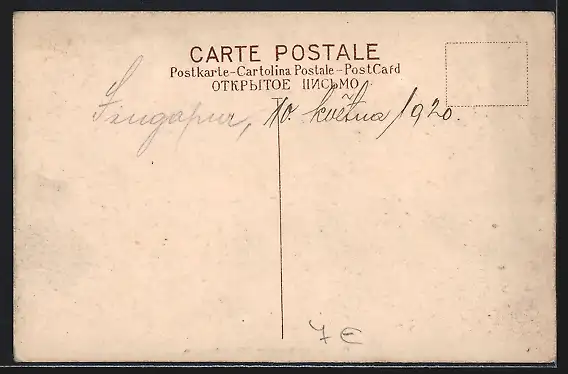 CARTE POSTALE
Postkarte-Cartolina Postale-PostCard
ОТКРЫТОЕ ПИСЬМО
Singapur, 10. května 1920.
7 €